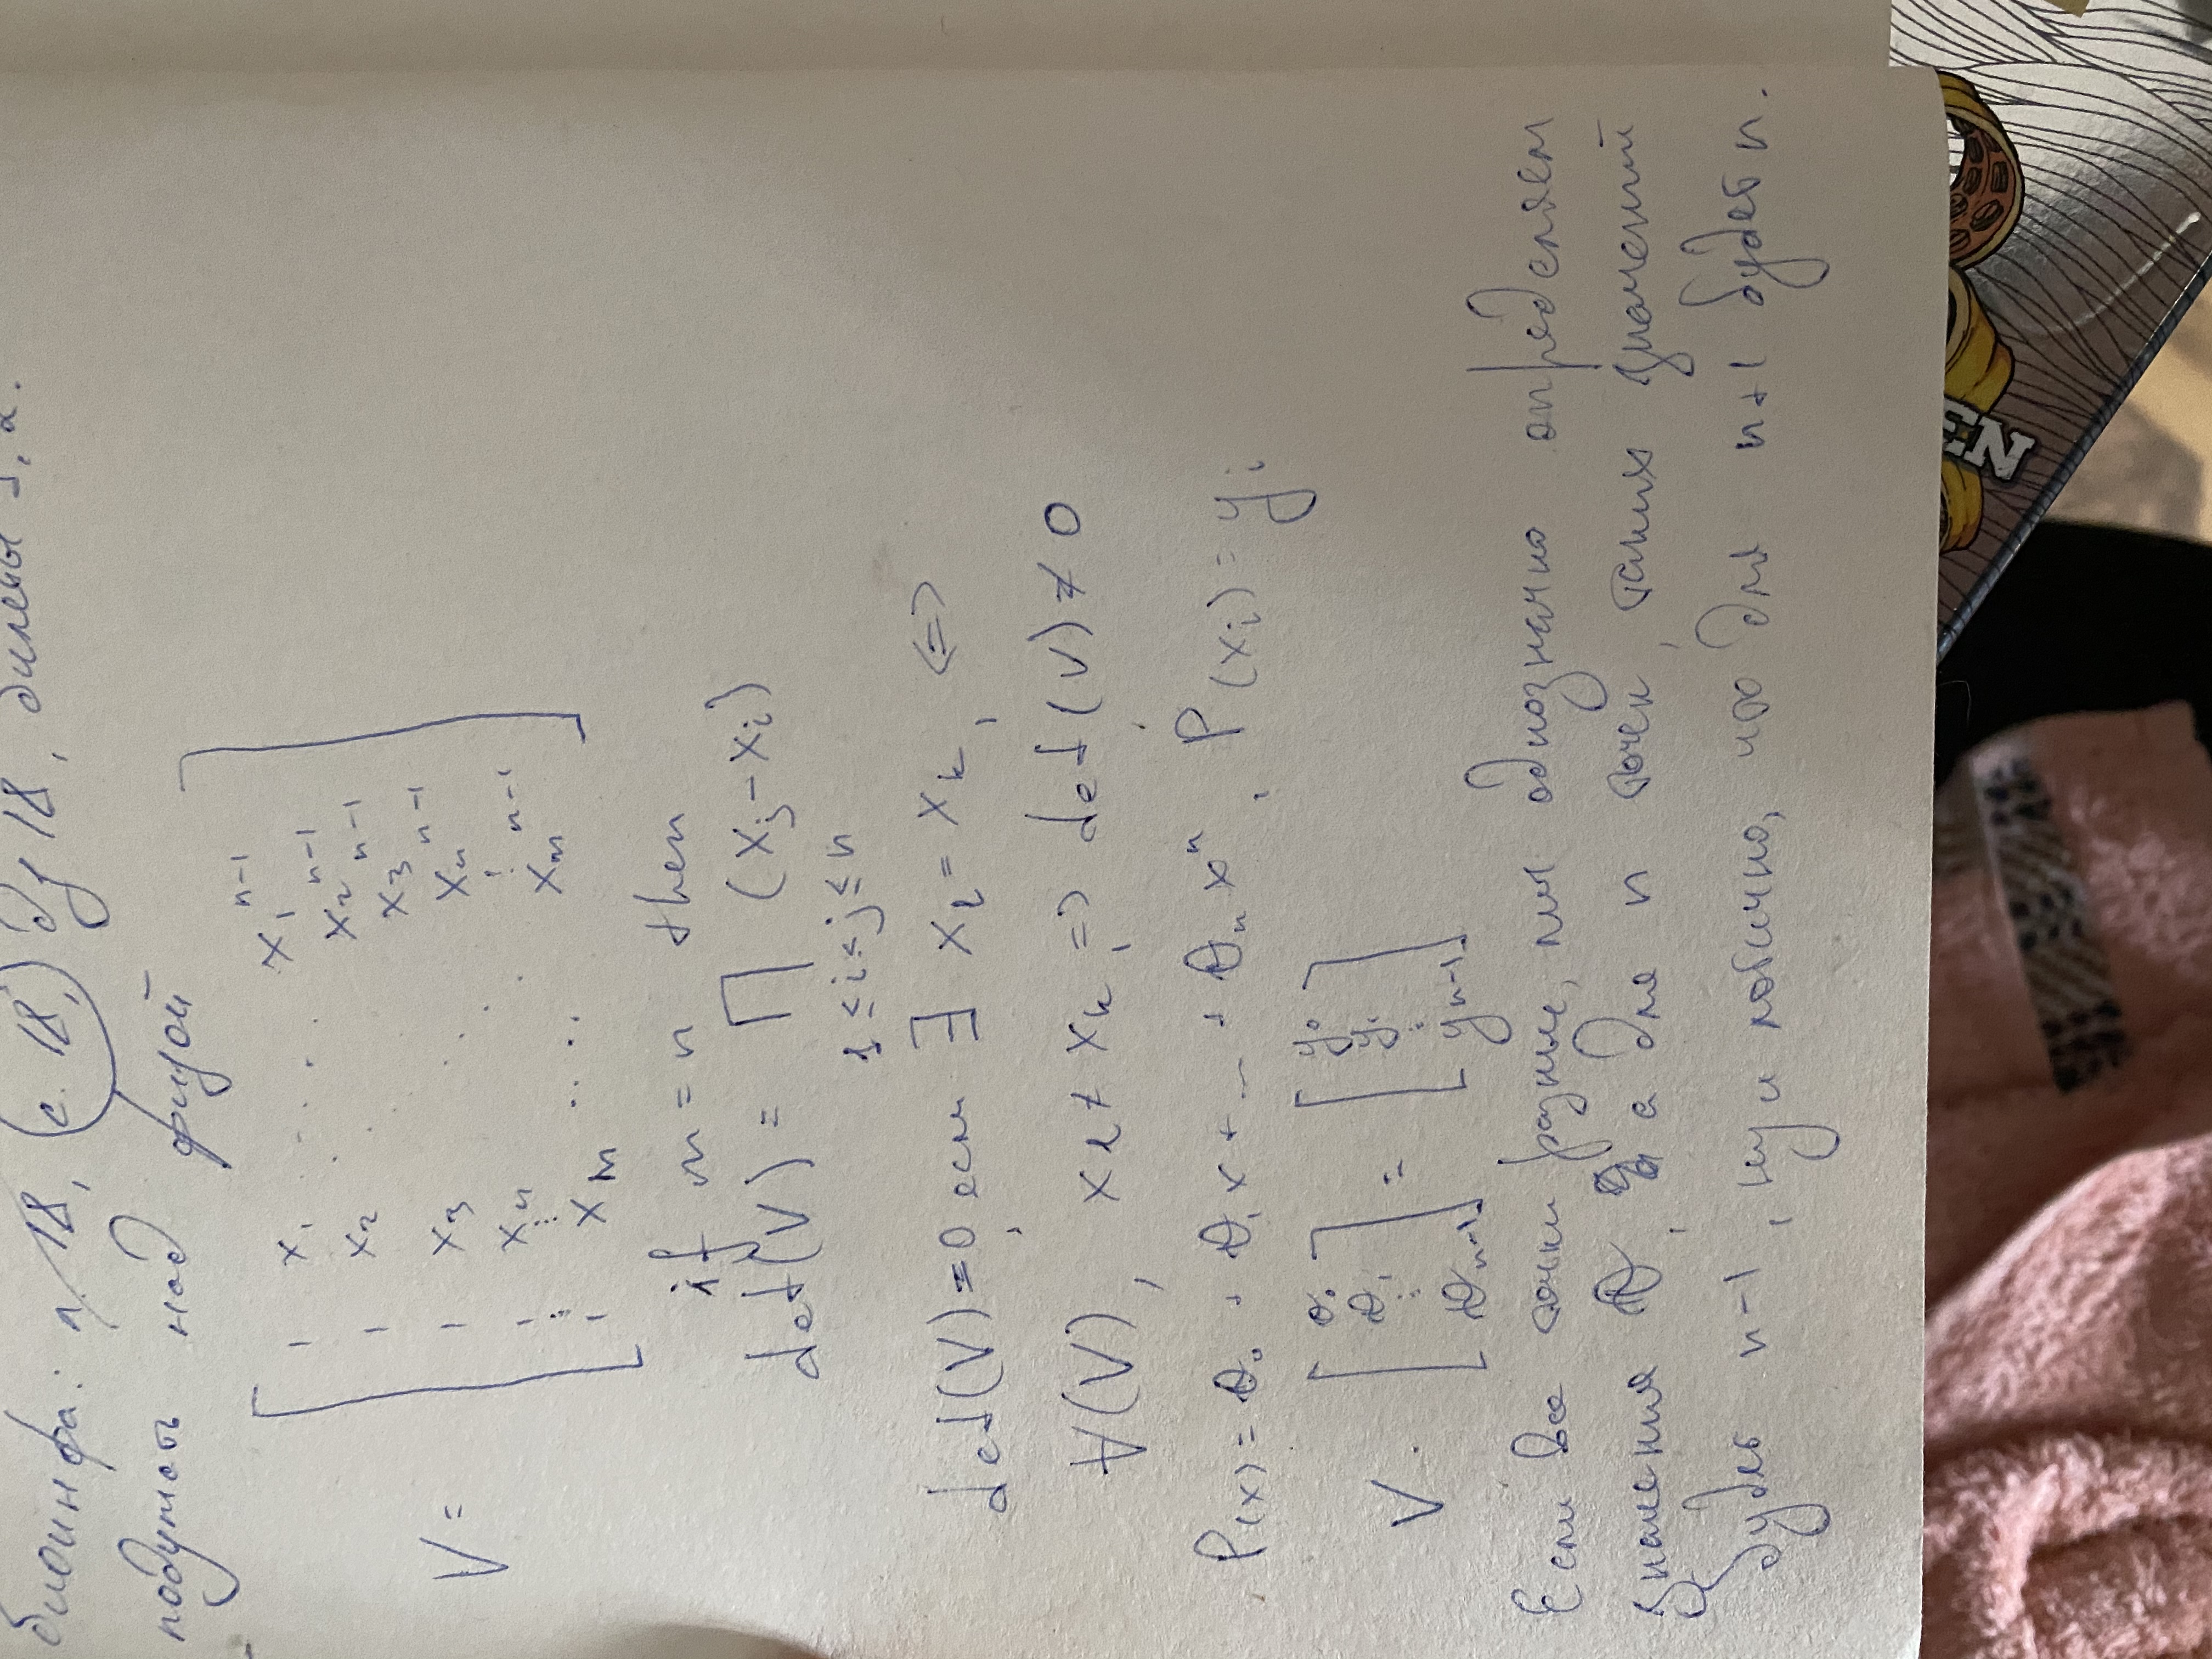 биоинфа: п. 18, с. 18, дз 18, билеты 1, 2.
подумать над физой
V = [
1 x₁ ..... x₁ⁿ⁻¹
1 x₂ . x₂ⁿ⁻¹
x₃ⁿ⁻¹
1 x₃ . xₙⁿ⁻¹
1 xₙ . ⋮
⋮ ⋮ xₘⁿ⁻¹
1 xₘ ....
]
if m = n then
det(V) = ∏ (xⱼ - xᵢ)
1 ≤ i < j ≤ n
det(V) = 0, если ∃ xₗ = xₖ, <=>
∀(V), xₗ ≠ xₖ, => det(V) ≠ 0
P(x) = θ₀ + θ₁x + ... + θₙxⁿ, P(xᵢ) = yᵢ
V · [θ₀ θ₁ ⋮ θₙ₋₁] = [y₀ y₁ ⋮ yₙ₋₁]
Если все точки разные, мы однозначно определяем
значения θ, а для n точек, таких значений
будет n-1, ну и логично, что для n+1 будет n.
EN